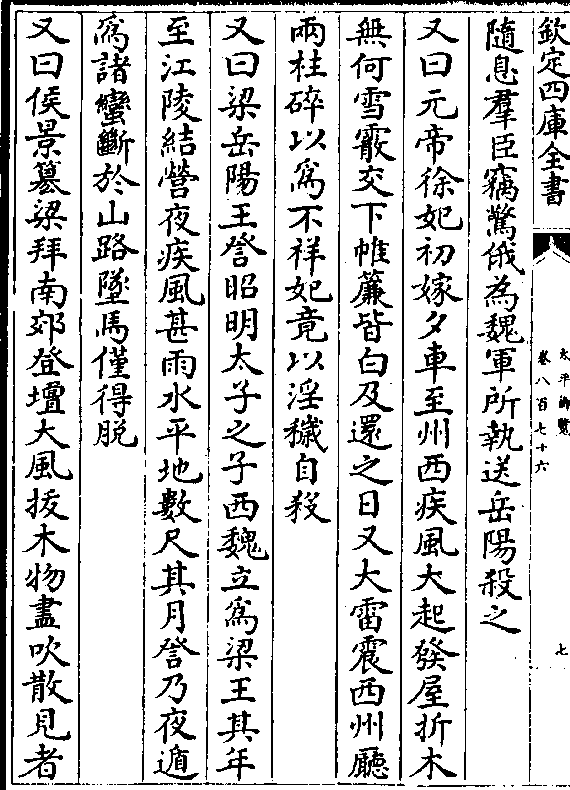 欽定四庫全書
太平御覽
卷八百七十六
七
隨息羣臣竊驚俄為魏軍所執送岳陽殺之
又曰元帝徐妃初嫁夕車至州西疾風大起發屋折木
無何雪霰交下帷簾皆白及還之日又大雷震西州廳
兩柱碎以為不祥妃竟以淫穢自殺
又曰梁岳陽王詧昭明太子之子西魏立為梁王其年
至江陵結營夜疾風甚雨水平地數尺其月詧乃夜遁
為諸蠻斷於山路墜馬僅得脫
又曰侯景簒梁拜南郊登壇大風拔木物盡吹散見者